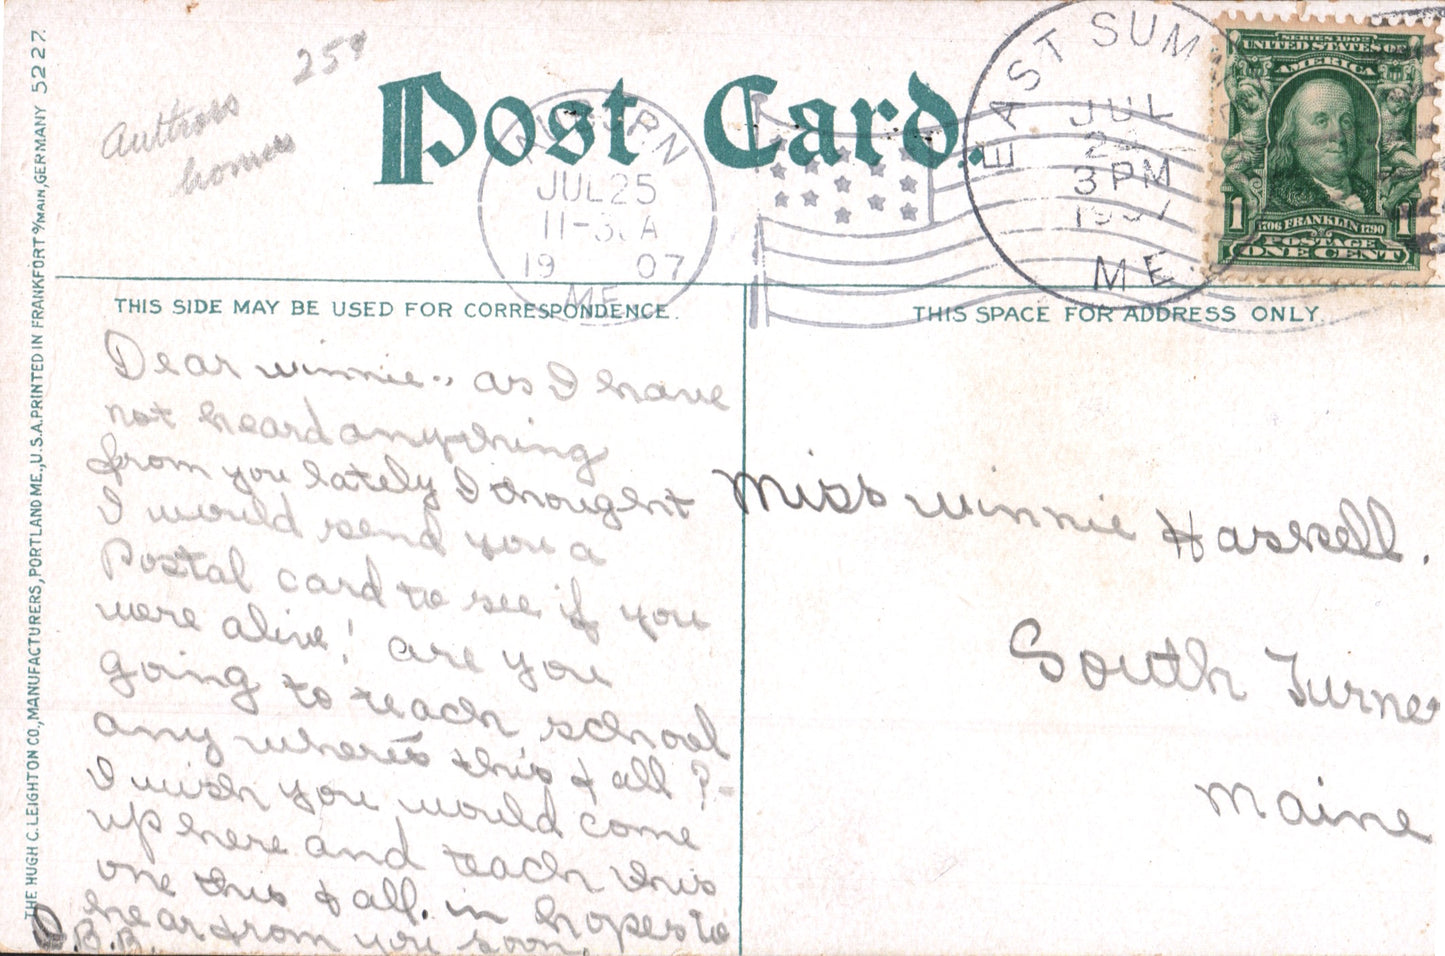 THE HUGH C. LEIGHTON CO., MANUFACTURERS, PORTLAND ME., U.S.A. PRINTED IN FRANKFORT o/MAIN, GERMANY 5227.
25
homes
Post Card.
AUBURN
JUL 25
11-30 A
19 07
ME
EAST SUM
JUL
3 PM
1907
ME.
SERIES 1902
UNITED STATES OF
AMERICA
1 1706 FRANKLIN 1790 1
POSTAGE
ONE CENT
THIS SIDE MAY BE USED FOR CORRESPONDENCE.
THIS SPACE FOR ADDRESS ONLY.
Dear winnie., as I have
not heard anything
from you lately I thought
I would send you a
Postal card to see if you
were alive! are you
going to teach school
any where's this fall?-
I wish you would come
up here and teach this
one this fall. in hopes to
hear from you soon.
B.B.
Miss winnie Haskell.
South Turner
Maine